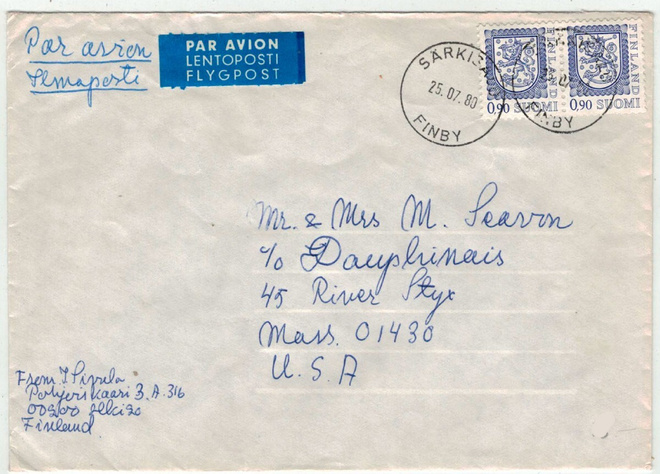 Par avion
Ilmaposti
PAR AVION
LENTOPOSTI
FLYGPOST
SÄRKISALO
25.07.80
FINBY
FINLAND
0,90 SUOMI
FINLAND
0,90 SUOMI
FINBY
Mr. & Mrs M. Seavon
c/o Dauphinais
45 River Styx
Mass. 01430
U.S.A
From
3. A. 316
00200
Finland